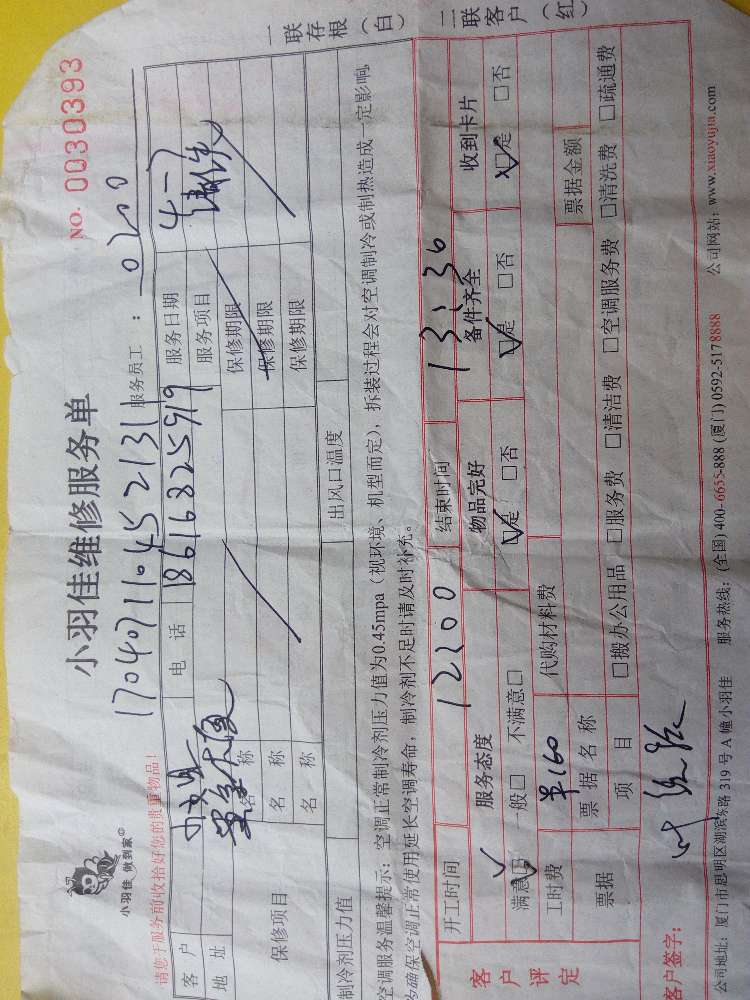 小羽佳 做到家
小羽佳维修服务单
NO. 0030393
17040711045 2131
请您于服务前收拾好您的贵重物品!
服务员工：0200
客户 电话 18616825919 服务日期 4-7
地址 服务项目
保修项目 名称 保修期限
名称 保修期限
名称 保修期限
制冷剂压力值 出风口温度
空调服务温馨提示：空调正常制冷剂压力值为0.45mpa（视环境、机型而定），拆装过程会对空调制冷或制热造成一定影响，
为确保空调正常使用延长空调寿命，制冷剂不足时请及时补充。
一联存根（白） 二联客户（红）
开工时间 12:00 结束时间 13:30
客户评定 服务态度 物品完好 备件齐全 收到卡片
满意☑ 一般□ 不满意□ ☑是 □否 ☑是 □否 ☑是 □否
工时费 ¥160 代购材料费
票据 票据名称 票据金额
项目 □搬办公用品 □服务费 □清洁费 □空调服务费 □清洗费 □疏通费
客户签字：
公司地址：厦门市思明区湖滨东路 319 号 A 幢小羽佳 服务热线：(全国) 400-6655-888 (厦门) 0592-5178888 公司网站：www.xiaoyujia.com